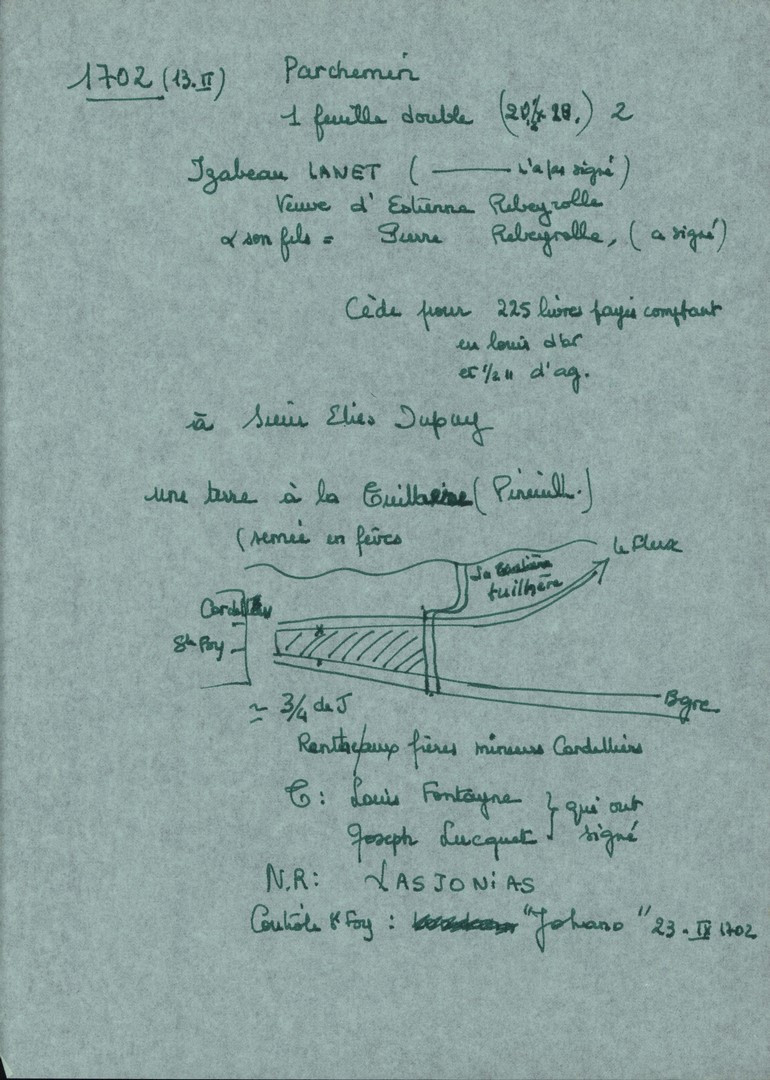 1702 (13.II) Parchemin
1 feuille double 2
Izabeau LANET ( signé)
Veuve d'Estienne Rebeyrolle
& son fils = Pierre Rebeyrolle, (a signé)
Cède pour 225 livres payés comptant
en louis d'or
et 1/2 " d'ag.
à Sieur Elies Dupuy
une terre à la (Pineuilh.)
(semée en fèves
le fleux
La
tuilhère
Ste Foy
Bgrc
≃ 3/4 de J
Rente aux frères mineurs Cordelliers
T: Louis Fontayne } qui ont
Joseph Lucquet signé
N.R: LASJONIAS
Contrôle Ste Foy : "Johano" 23.II 1702